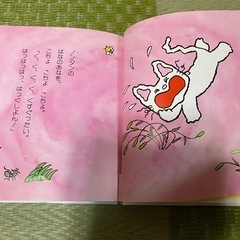 ノンタンの
はなのあなを、
こちょ こちょ こちょ。
く、く、く、くすぐったい。
はっはっはっ、はっくしょん！